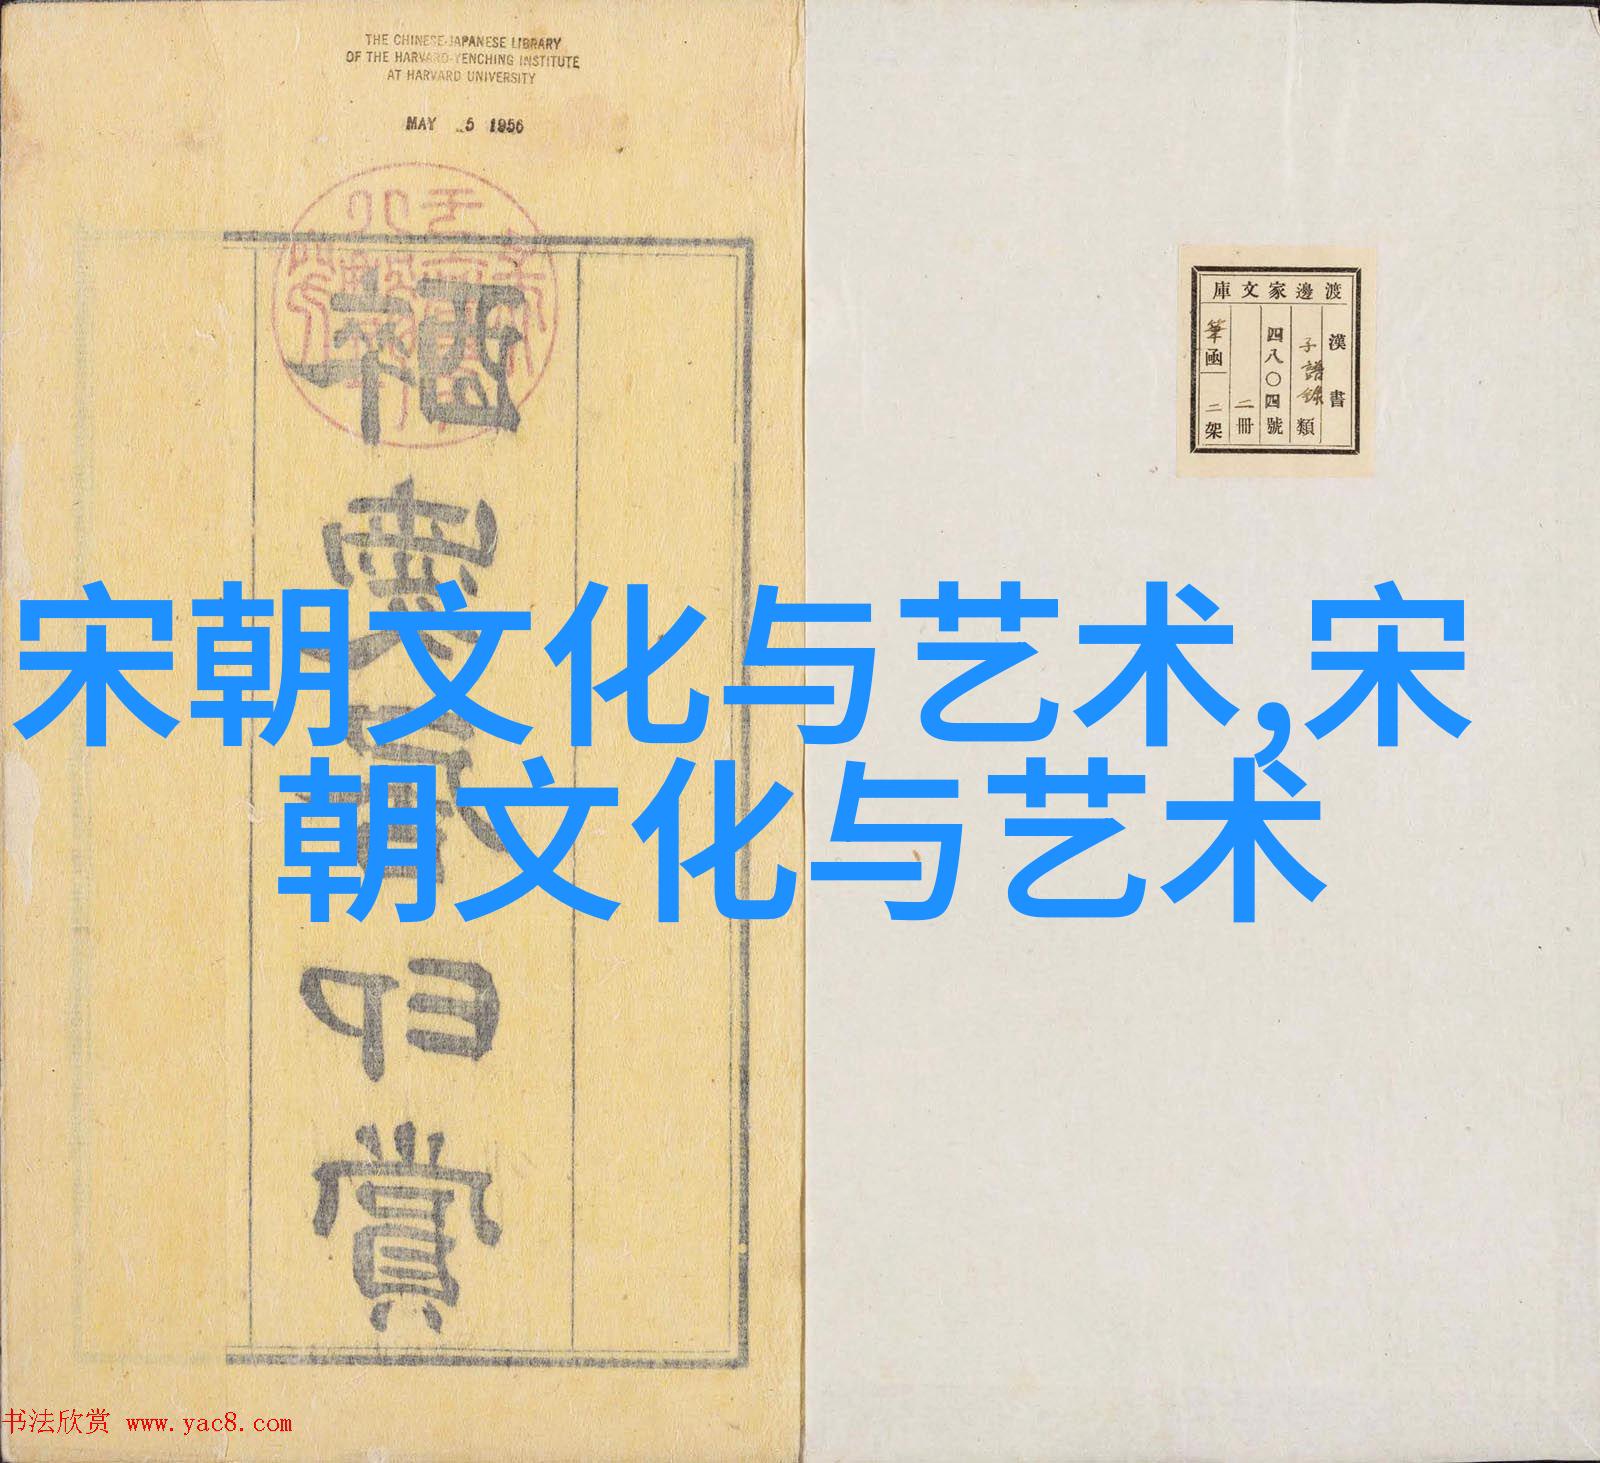 THE CHINESE-JAPANESE LIBRARY
OF THE HARVARD-YENCHING INSTITUTE
AT HARVARD UNIVERSITY
MAY 25 1956
渡邊家文庫
漢書
子譜錄類
四八〇四號
二冊
筆函
二架
宋朝文化与艺术,宋
朝文化与艺术
书法欣赏 www.yac8.com